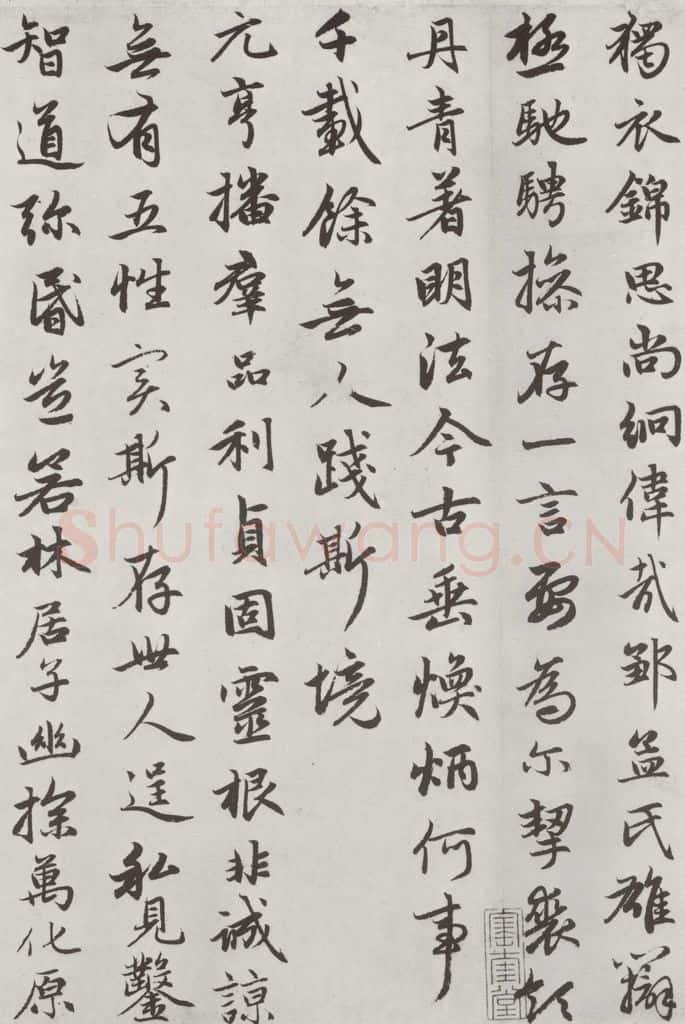 獨衣錦思尚絅偉哉鄒孟氏雄辯
極馳騁操存一言要為尔挈裘領
丹青著明法今古垂煥炳何事
千載餘無人踐斯境
元亨播羣品利貞固靈根非誠諒
無有五性實斯存世人逞私見鑿
智道弥昬豈若林居子幽探萬化原
Shufawang.CN